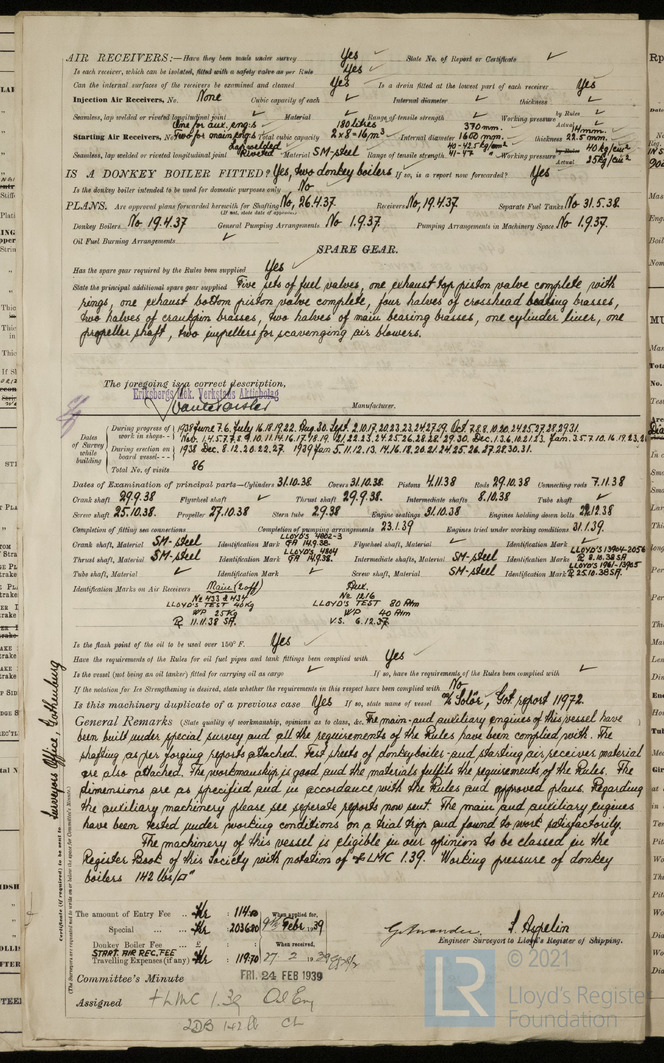 AIR RECEIVERS:—Have they been made under survey Yes State No. of Report or Certificate
Is each receiver, which can be isolated, fitted with a safety valve as per Rule Yes
Can the internal surfaces of the receivers be examined and cleaned Yes Is a drain fitted at the lowest part of each receiver Yes
Injection Air Receivers, No. None Cubic capacity of each Internal diameter thickness
Seamless, lap welded or riveted longitudinal joint Material Range of tensile strength Working pressure by Rules Actual
One for aux. engs 180 litres 370 mm. 14 mm.
Starting Air Receivers, No. Two for main engs Total cubic capacity 2x8=16 m³ Internal diameter 1600 mm. thickness 22.5 mm.
lap welded 40-42.5 kg/mm² 40 kg/cm²
Seamless, lap welded or riveted longitudinal joint Riveted Material SM-steel Range of tensile strength 41-47 Working pressure by Rules Actual 25 kg/cm²
IS A DONKEY BOILER FITTED? Yes, two donkey boilers If so, is a report now forwarded? Yes
Is the donkey boiler intended to be used for domestic purposes only No
PLANS. Are approved plans forwarded herewith for Shafting No, 26.4.37 Receivers No, 19.4.37 Separate Fuel Tanks No 31.5.38.
(If not, state date of approval)
Donkey Boilers No 19.4.37 General Pumping Arrangements No 1.9.37. Pumping Arrangements in Machinery Space No 1.9.37.
Oil Fuel Burning Arrangements
SPARE GEAR.
Has the spare gear required by the Rules been supplied Yes
State the principal additional spare gear supplied Five sets of fuel valves, one exhaust top piston valve complete with
rings, one exhaust bottom piston valve complete, four halves of crosshead brasses,
two halves of crankpin brasses, two halves of main bearing brasses, one cylinder liner, one
propeller shaft, two impellers for scavenging air blowers.
The foregoing is a correct description,
Eriksbergs Mek. Verkstads Aktiebolag
Manufacturer.
Dates of Survey while building
During progress of work in shops - - 1938 June 7.6. July 16.18.19.22. Aug. 30. Sept. 2.10.17.20.23.23.24.27.29. Oct. 7.8.8.10.20.24.25.27.28.29.31.
Nov. 1.4.5.7.7.8.9.10.11.14.16.17.18.19.21.22.23.24.25.26.28.28.29.30. Dec. 1.3.6.10.21.23. Jan. 3.5.7.10.16.19.23.
During erection on board vessel - - - 1938 Dec. 8.12.20.22.27. 1939 Jan 5.11.12.13.14.16.18.20.21.24.25.26.27.28.30.31.
Total No. of visits 86
Dates of Examination of principal parts—Cylinders 31.10.38. Covers 31.10.38. Pistons 4.11.38 Rods 29.10.38 Connecting rods 7.11.38
Crank shaft 29.9.38 Flywheel shaft Thrust shaft 29.9.38. Intermediate shafts 8.10.38 Tube shaft
Screw shaft 25.10.38. Propeller 27.10.38 Stern tube 29.38 Engine seatings 31.10.38 Engines holding down bolts 28.12.38
Completion of fitting sea connections Completion of pumping arrangements 23.1.39 Engines tried under working conditions 31.1.39.
Crank shaft, Material SM-steel Identification Mark LLOYD'S 4802-3 GA 14.9.38. Flywheel shaft, Material Identification Mark
Thrust shaft, Material SM-steel Identification Mark LLOYD'S 4804 GA 14.9.38. Intermediate shafts, Material SM-steel Identification Marks LLOYD'S 13904-2056 R 8.10.38 SA
Tube shaft, Material Identification Mark Screw shaft, Material SM-steel Identification Mark LLOYD'S 1961-13905 R 25.10.38 SA.
Identification Marks on Air Receivers Main (2 off) Aux.
No 433 & 434 No 1216
LLOYD'S TEST 40 Kg LLOYD'S TEST 80 Atm
WP 25 Kg WP 40 Atm
R 11.11.38 SA. V.S. 6.12.37.
Is the flash point of the oil to be used over 150° F. Yes
Have the requirements of the Rules for oil fuel pipes and tank fittings been complied with Yes
Is the vessel (not being an oil tanker) fitted for carrying oil as cargo If so, have the requirements of the Rules been complied with
If the notation for Ice Strengthening is desired, state whether the requirements in this respect have been complied with No
Is this machinery duplicate of a previous case Yes If so, state name of vessel M/s "Solör", Got report 11972.
General Remarks (State quality of workmanship, opinions as to class, &c. The main- and auxiliary engines of this vessel have
been built under special survey and all the requirements of the Rules have been complied with. The
shafting as per forging reports attached. Test sheets of donkeyboiler- and starting air receivers material
are also attached. The workmanship is good and the materials fulfils the requirements of the Rules. The
dimensions are as specified and in accordance with the Rules and approved plans. Regarding
the auxiliary machinery please see seperate reports now sent. The main and auxiliary engines
have been tested under working conditions on a trial trip and found to work satisfactorily.
The machinery of this vessel is eligible in our opinion to be classed in the
Register Book of this Society with notation of +LMC 1.39. Working pressure of donkey
boilers 142 lbs/□"
Surveyors Office, Gothenburg
Certificate (if required) to be sent to
(The Surveyors are requested not to write on or below the space for Committee's Minute.)
The amount of Entry Fee .. Kr : 114.50 When applied for,
Special ... .. : 2036.20 9th Febr 1939
Donkey Boiler Fee .. £ : : When received,
START. AIR REC. FEE
Travelling Expenses (if any) Kr : 119.70 27 2 1939
S. Aspelin
Engineer Surveyor to Lloyd's Register of Shipping.
Committee's Minute FRI. 24 FEB 1939
Assigned +LMC 1.39 Oil Eng
2DB 142 lb CL
© 2021
LR
Lloyd's Register
Foundation